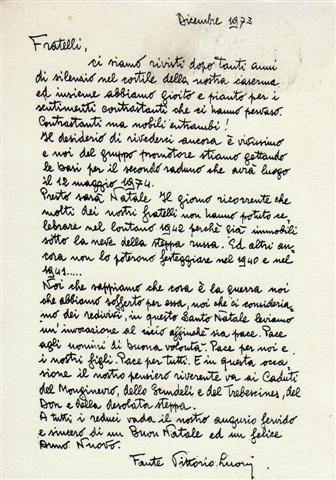 Dicembre 1973
Fratelli,
ci siamo rivisti dopo tanti anni
di silenzio nel cortile della nostra caserma
ed insieme abbiamo gioito e pianto per i
sentimenti contrastanti che ci hanno pervaso.
Contrastanti ma nobili entrambi!
Il desiderio di rivederci ancora è vivissimo
e noi del gruppo promotore stiamo gettando
le basi per il secondo raduno che avrà luogo
il 12 maggio 1974.
Presto sarà Natale. Il giorno ricorrente che
molti dei nostri fratelli non hanno potuto ce-
lebrare nel lontano 1942 perché già immobili
sotto la neve della steppa russa. Ed altri an-
cora non lo poterono festeggiare nel 1940 e nel
1941.....
Noi che sappiamo che cosa è la guerra noi
che abbiamo sofferto per essa, noi che ci consideria-
mo dei redivivi, in questo Santo Natale leviamo
un'invocazione al cielo affinché sia pace. Pace
agli uomini di buona volontà. Pace per noi e
i nostri figli. Pace per tutti. E in questa occa-
sione il nostro pensiero riverente va ai Caduti
del Monginevro, dello Scindeli e del Trebescines, del
Don e della desolata steppa.
A tutti i reduci vada il nostro augurio fervido
e sincero di un Buon Natale ed un felice
Anno Nuovo.
Fante Vittorio